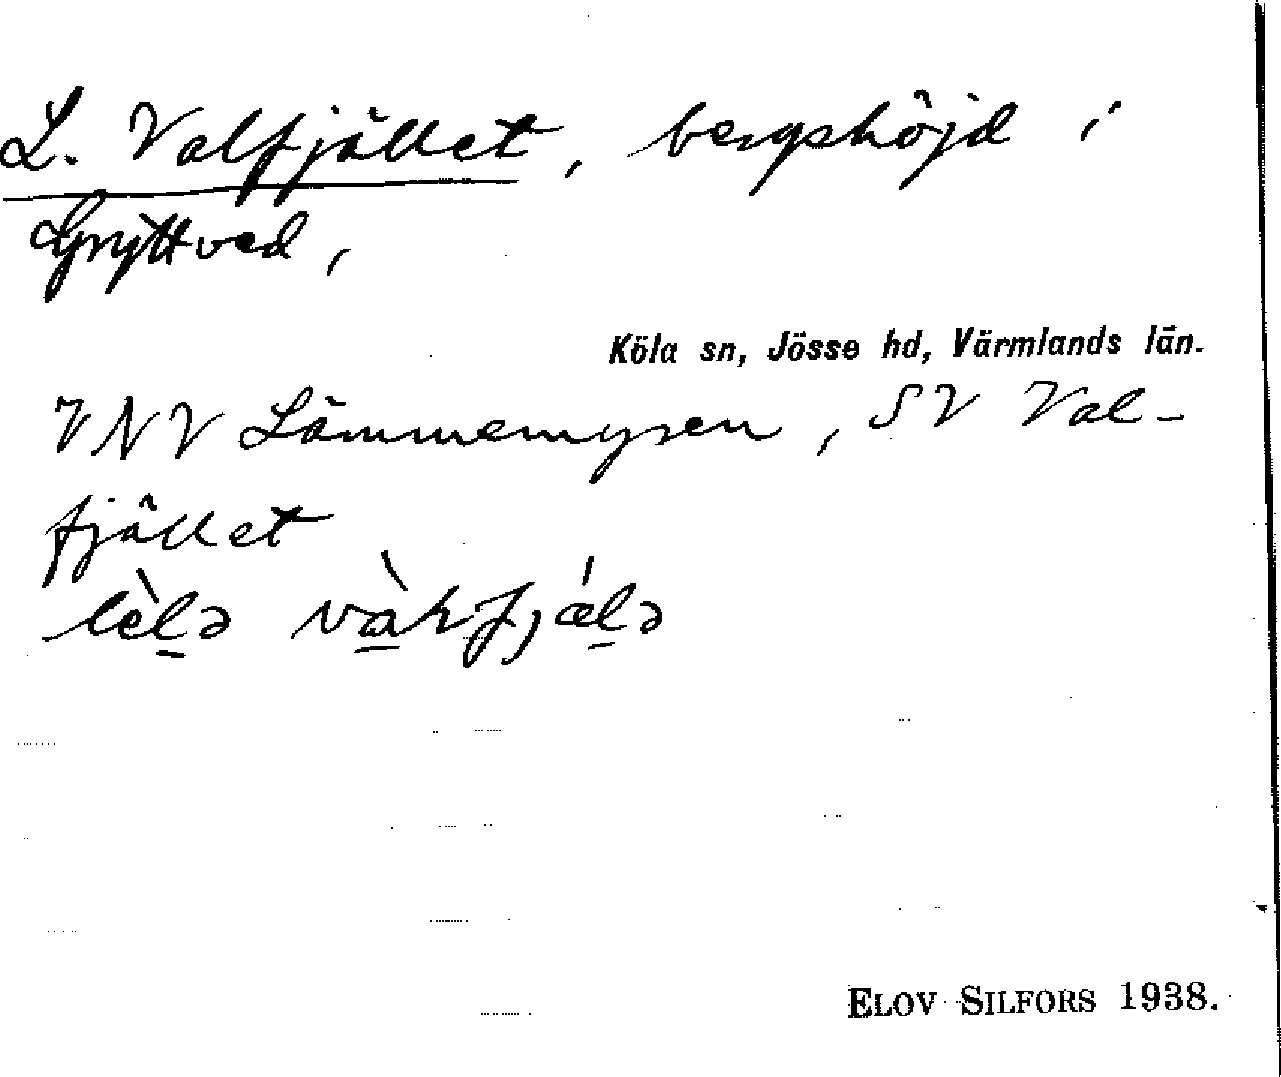 L. Valfjället, bergshöjd i
Gryttved,
Köla sn, Jösse hd, Värmlands län.
VNV Lämmemyren, SV Val-
fjället
ELOV SILFORS 1938.